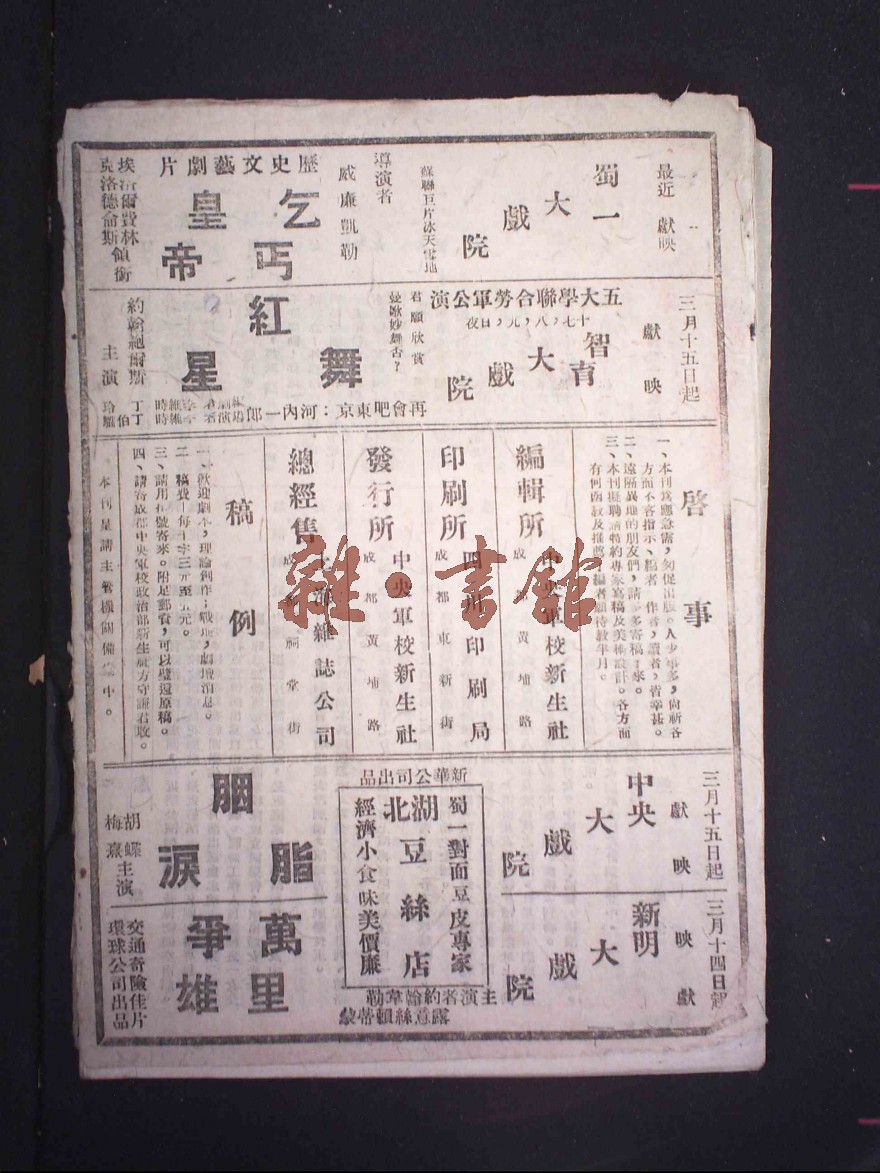 最近 獻映
蜀一大戲院
蘇聯巨片冰天雪地
導演者
威廉凱勒
歷史文藝劇片
乞丐皇帝
埃洛爾費林
克洛德侖斯
領銜
三月十五日起
獻映
智育大戲院
五大學聯合勞軍公演
十七，八，九，日夜
君願欣賞
曼歌妙舞否？
紅舞星
約翰鮑爾斯
主演
再會吧東京：河內一郎
啓事
一、本刊為應急需，匆促出版。人少事多，尚祈各
方面不吝指示、編者，作者，讀者，皆幸甚。
二、遠隔異地的朋友們，請多多寄稿子來。
三、本刊擬聘請特約專家寫稿及美術設計。各方面
有何函教及推薦，編者願待教半月。
編輯所
中央軍校新生社
成都黃埔路
印刷所
四川印刷局
成都東新街
發行所
中央軍校新生社
成都黃埔路
總經售
上海雜誌公司
成都祠堂街
稿例
一、歡迎劇本，理論創作；戰地，劇壇消息。
二、稿費—每千字三元至五元。
三、請用掛號寄來。附足郵資，可以璧還原稿。
四、請寄成都中央軍校政治部新生社方守謙君收。
本刊呈請主管機關備案中。
三月十五日起
獻映
中央大戲院
三月十四日起
映獻
新明大戲院
新華公司出品
蜀一對面豆皮專家
湖北豆絲店
經濟小食味美價廉
主演者約翰韋勒
露意絲賴蒂蒙
胭脂淚
胡蝶
梅熹
主演
萬里爭雄
交通奇險佳片
環球公司出品
雜·書館